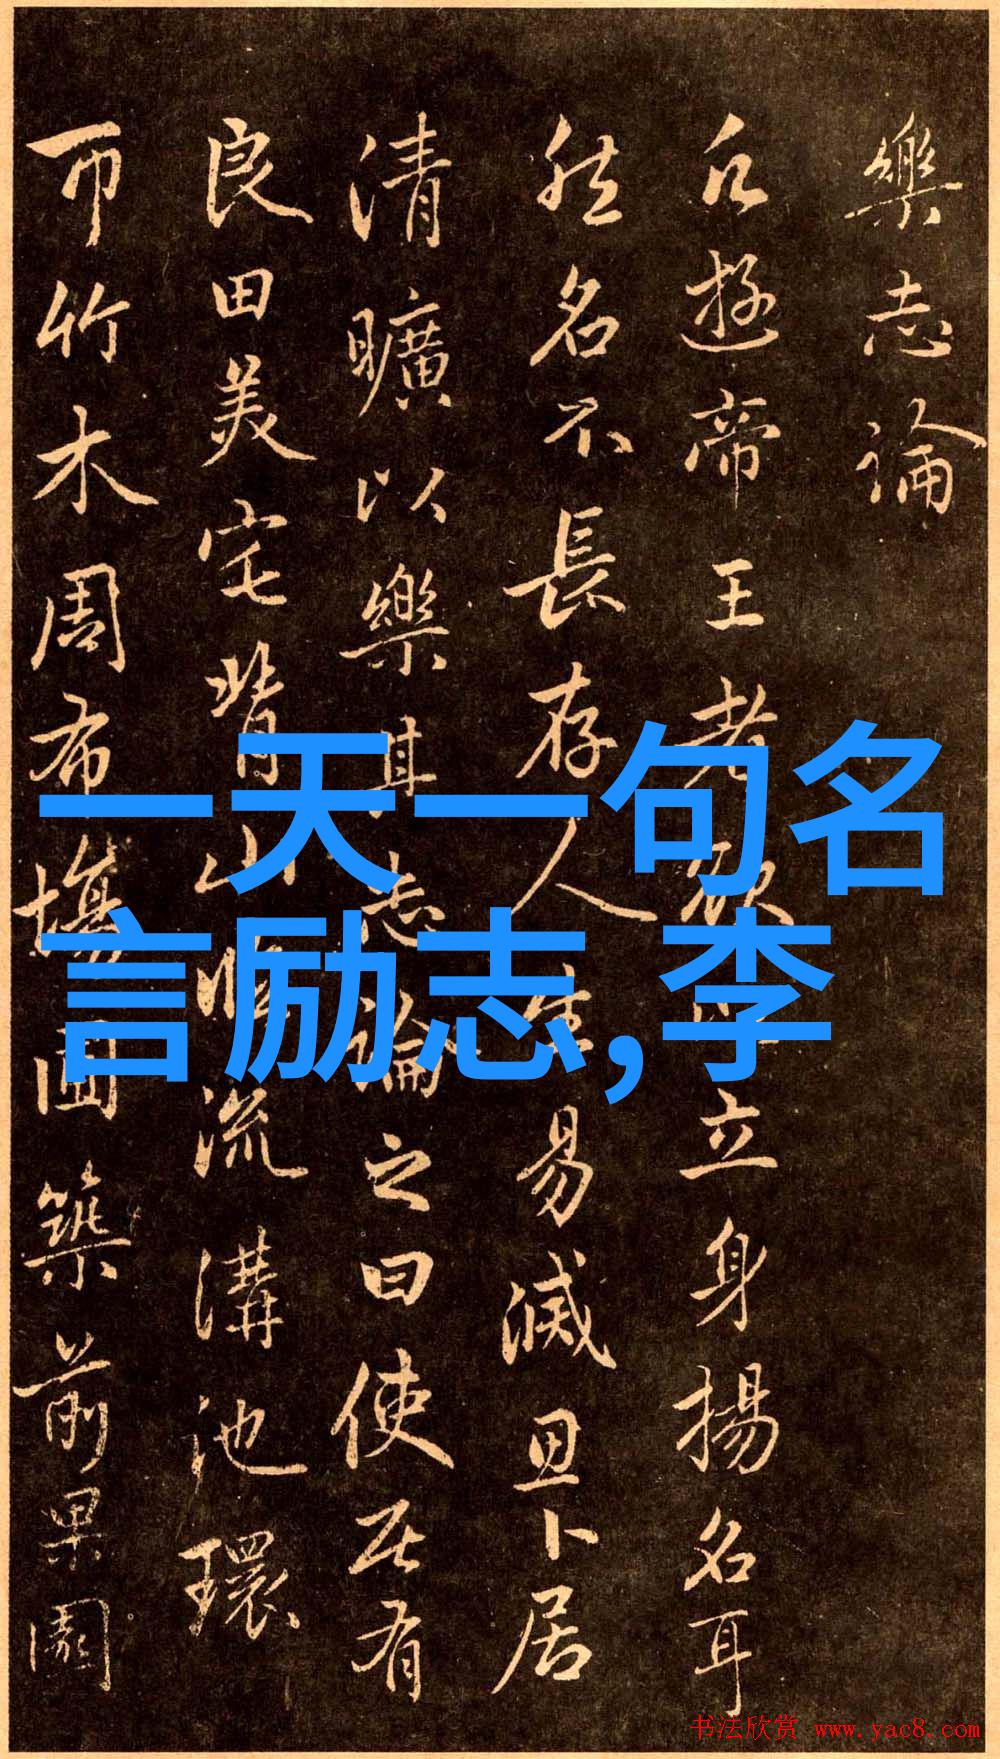 樂志論
凡遊帝王者欲以立身揚名耳
然名不長存人生易滅思卜居
清曠以樂其志論之曰使居有
良田美宅背山臨流溝池環
帀竹木周布場圃築前果園
一天一句名
言励志,李
书法欣赏 www.yac8.com